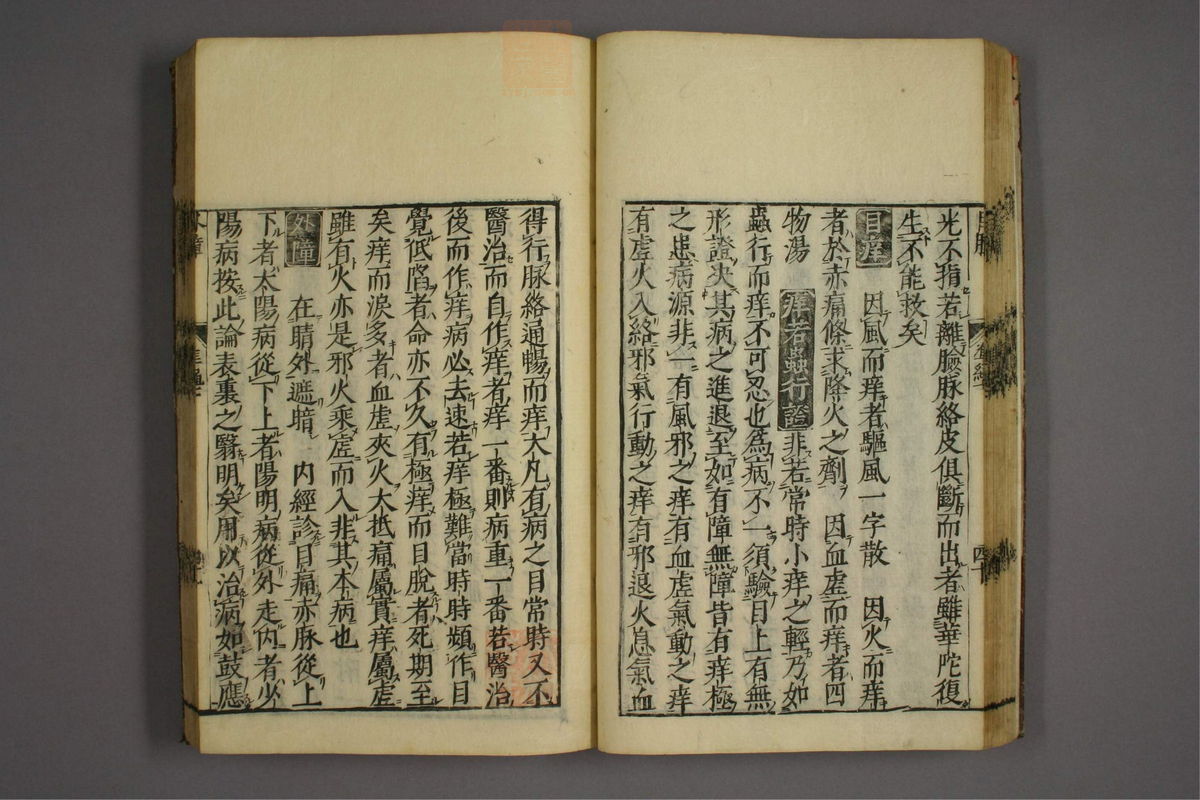 光不損若離臉脉絡皮俱斷而出者雖華陀復
生不能救矣
目痒 因風而痒者驅風一字散 因火而痒
者於赤痛條求降火之劑 因血虛而痒者四
物湯 痒若蟲行證 非若常時小痒之輕乃如
蟲行而痒不可忍也為病不一須驗目上有無
形證決其病之進退至如有障無障皆有痒極
之患病源非一有風邪之痒有血虛氣動之痒
有虛火入絡邪氣行動之痒有邪退火息氣血
得行脉絡通暢而痒大凡有病之目常時又不
醫治而自作痒者痒一番則病重一番若醫治
後而作痒病必去速若痒極難當時時頻作目
覺低陷者命亦不久有極痒而目脫者死期至
矣痒而淚多者血虛夾火大抵痛屬實痒屬虛
雖有火亦是邪火乘虛而入非其本病也
外障 在睛外遮暗 內經診目痛赤脉從上
下者太陽病從下上者陽明病從外走內者少
陽病按此論表裏之翳明矣用以治病如鼓應